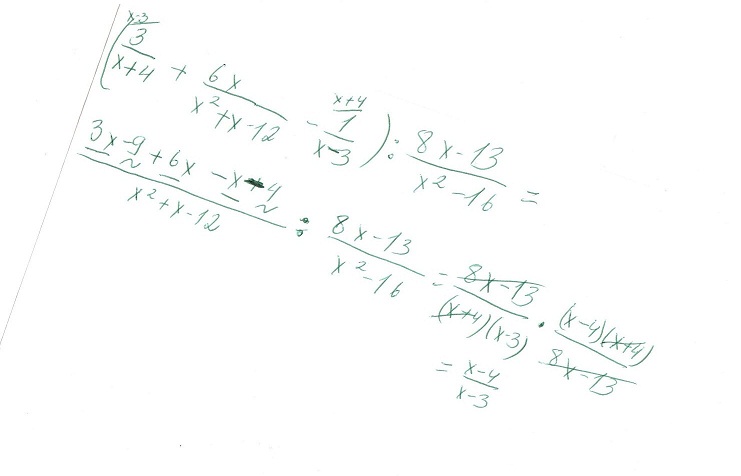 (3/(x+4)^(x-3) + 6x/(x²+x-12) - 1/(x-3)^(x+4)) : (8x-13)/(x²-16) =
(3x-9+6x-x-4)/(x²+x-12) : (8x-13)/(x²-16) = (8x-13)/((x+4)(x-3)) · ((x-4)(x+4))/(8x-13)
= (x-4)/(x-3)